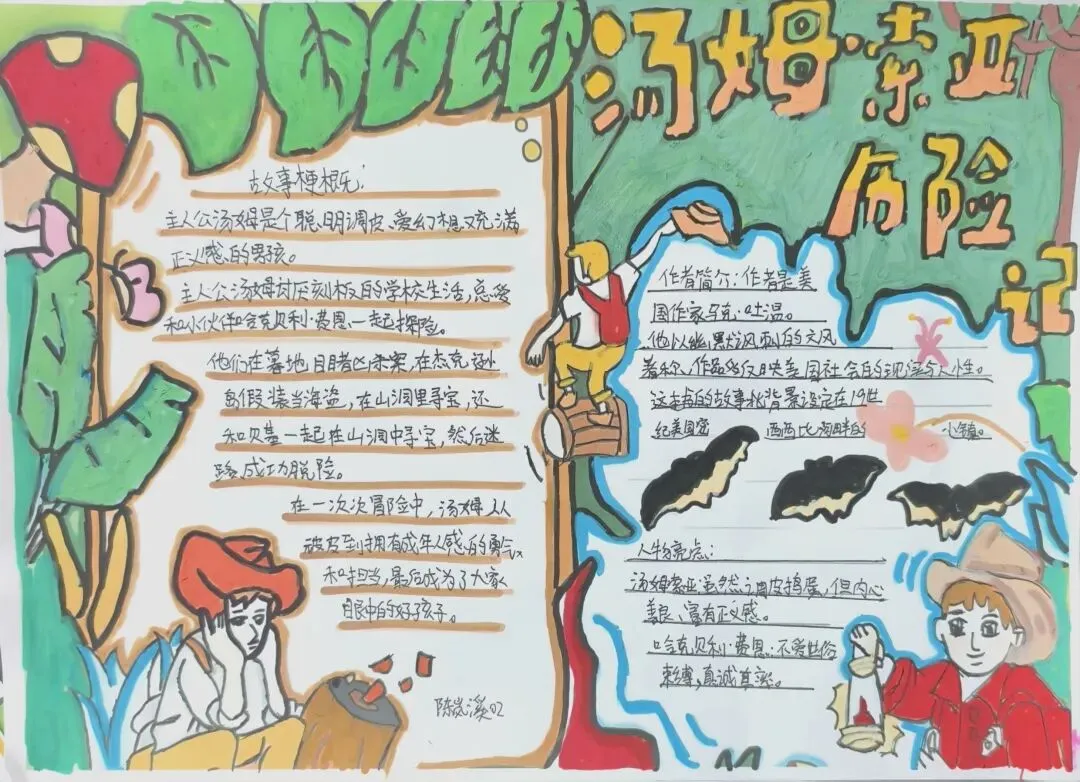 汤姆·索亚
历险
记
故事梗概:
主人公汤姆是个聪明调皮、爱幻想又充满
正义感的男孩。
主人公汤姆讨厌刻板的学校生活,总爱
和小伙伴哈克贝利·费恩一起探险。
他们在墓地目睹凶杀案,在杰克逊
岛假装当海盗,在山洞里寻宝,还
和贝基一起在山洞中寻宝,然后迷
路成功脱险。
在一次次冒险中,汤姆从
调皮到拥有成年人感的勇气
和担当,最后成为了大家
眼中的好孩子。
陈岚溪02
作者简介:作者是美
国作家马克·吐温。
他以幽默讽刺的文风
著称,作品多反映美国社会的现实与人性。
这本书的故事背景设定在19世
纪美国密 西西比河畔的 小镇。
人物亮点:
汤姆索亚虽然调皮捣蛋,但内心
善良、富有正义感。
哈克贝利·费恩:不爱世俗
束缚,真诚真实。